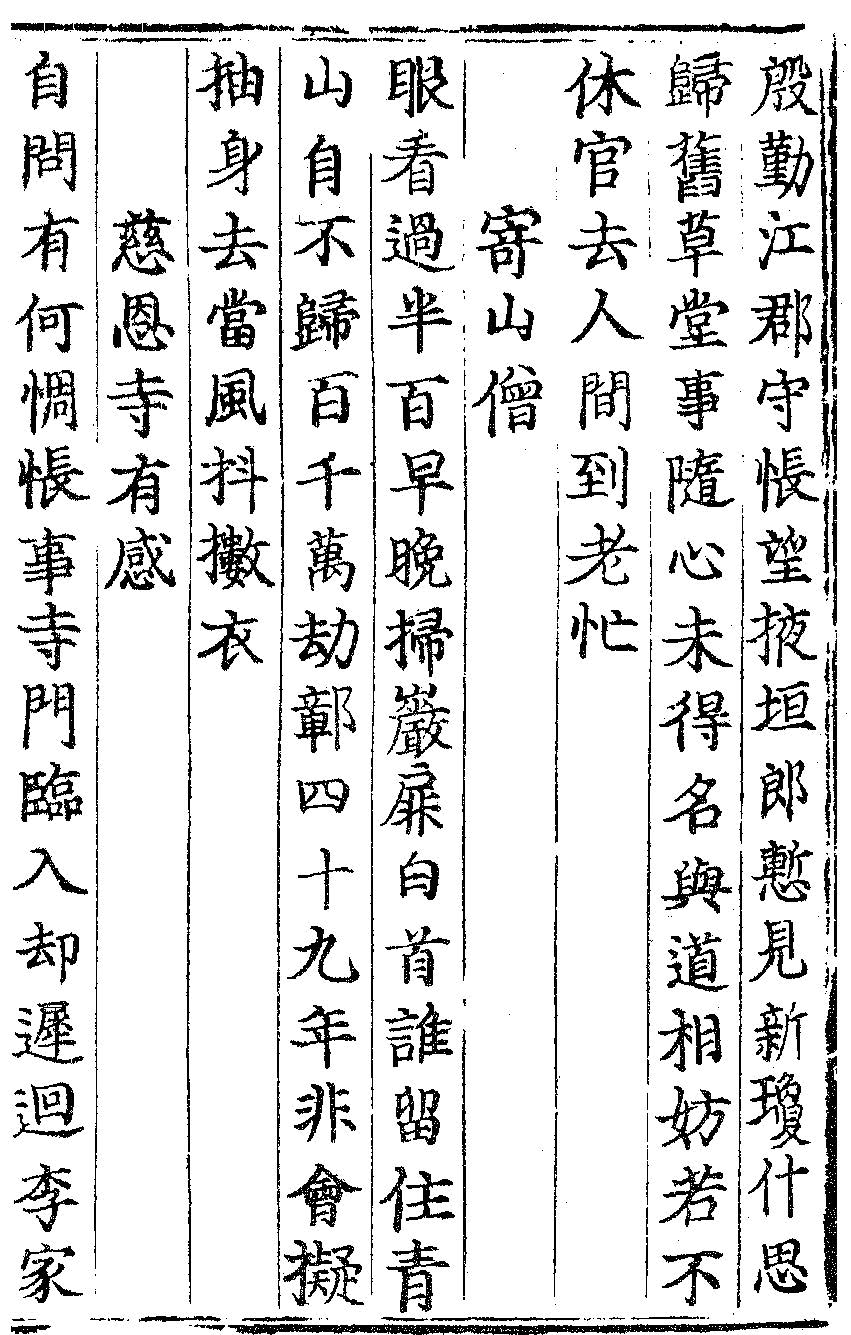 殷勤江郡守悵望掖垣郎慙見新瓊什思
歸舊草堂事隨心未得名與道相妨若不
休官去人間到老忙
寄山僧
眼看過半百早晚掃巖扉白首誰留住青
山自不歸百千萬劫鄣四十九年非會擬
抽身去當風抖擻衣
慈恩寺有感
自問有何惆悵事寺門臨入却遲迴李家